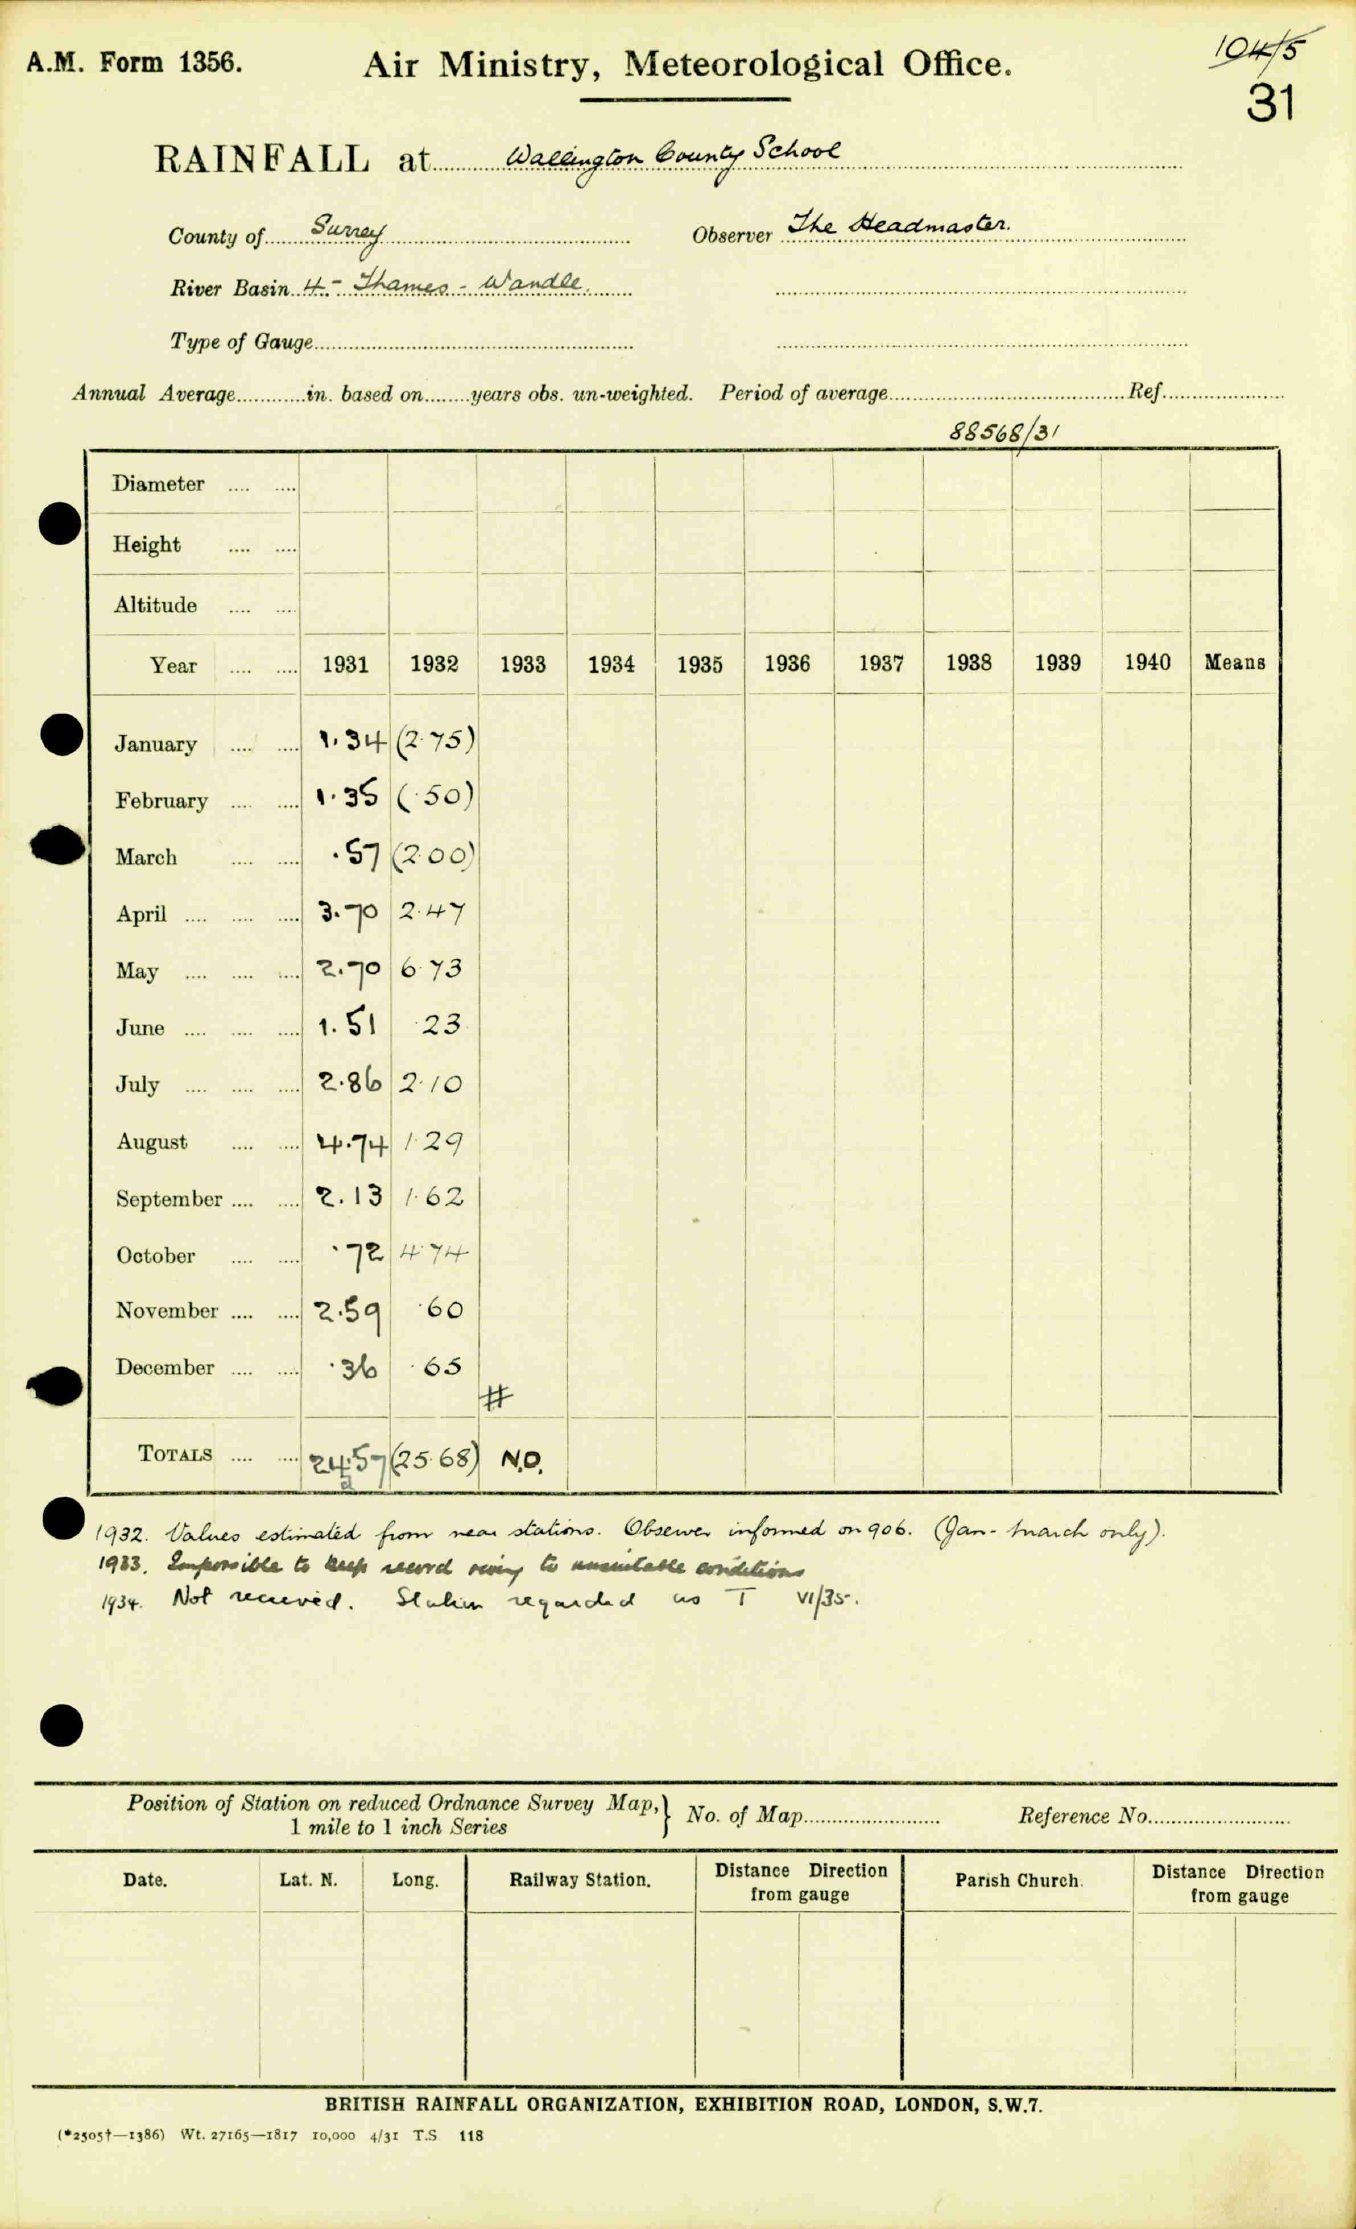 A.M. Form 1356. Air Ministry, Meteorological Office. 104/5
31
RAINFALL at Wallington County School
County of Surrey Observer The Headmaster.
River Basin 4. - Thames - Wandle.
Type of Gauge
Annual Average in. based on years obs. un-weighted. Period of average Ref.
88568/31
Diameter
Height
Altitude
Year 1931 1932 1933 1934 1935 1936 1937 1938 1939 1940 Means
January 1.34 (2.75)
February 1.35 (.50)
March .57 (2.00)
April 3.70 2.47
May 2.70 6.73
June 1.51 .23
July 2.86 2.10
August 4.74 1.29
September 2.13 1.62
October .72 4.74
November 2.59 .60
December .36 .65
#
TOTALS 24.57 (25.68) N.O.
1932. Values estimated from near stations. Observer informed on 906. (Jan - March only).
1933. Impossible to keep record owing to unsuitable conditions
1934. Not received. Station regarded as T VI/35.
Position of Station on reduced Ordnance Survey Map, } No. of Map Reference No.
1 mile to 1 inch Series
Date. Lat. N. Long. Railway Station. Distance Direction from gauge Parish Church. Distance Direction from gauge
BRITISH RAINFALL ORGANIZATION, EXHIBITION ROAD, LONDON, S.W.7.
(*2505†—1386) Wt. 27165—1817 10,000 4/31 T.S 118